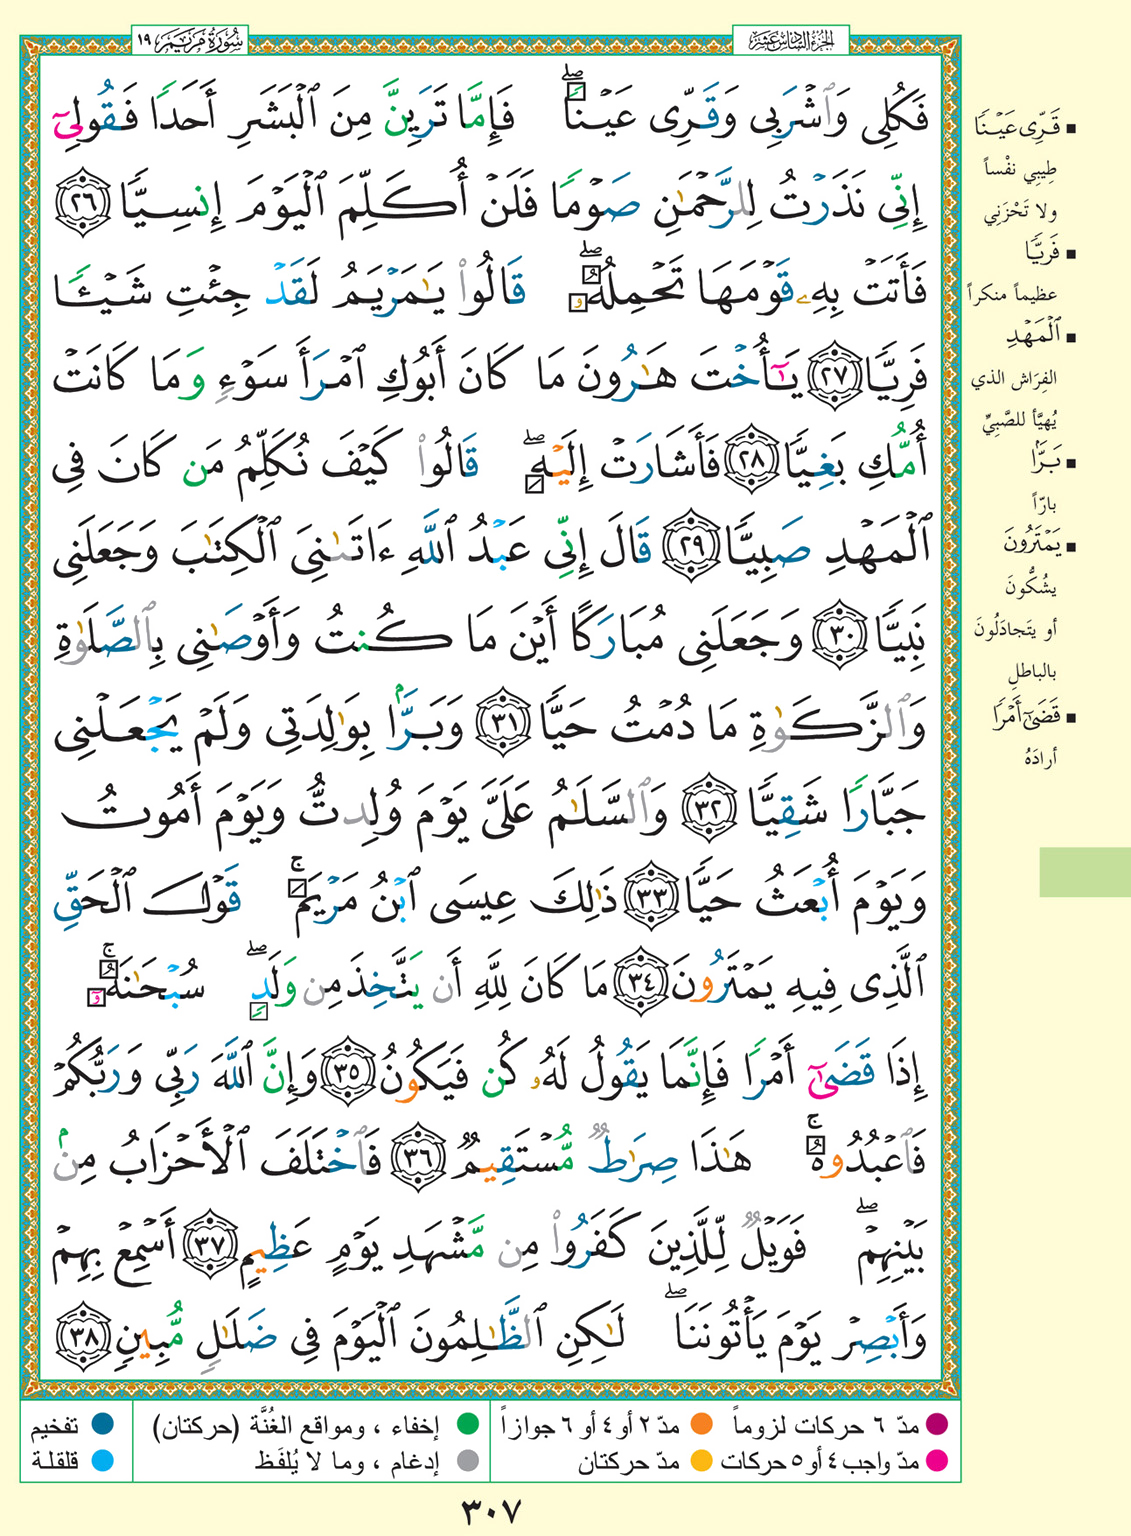 الجزء السادس عشر
سورة مريم ١٩
فَكُلِى وَٱشْرَبِى وَقَرِّى عَيْنًا ۖ فَإِمَّا تَرَيِنَّ مِنَ ٱلْبَشَرِ أَحَدًا فَقُولِىٓ
إِنِّى نَذَرْتُ لِلرَّحْمَٰنِ صَوْمًا فَلَنْ أُكَلِّمَ ٱلْيَوْمَ إِنسِيًّا ٢٦
فَأَتَتْ بِهِۦ قَوْمَهَا تَحْمِلُهُۥ ۖ قَالُوا۟ يَٰمَرْيَمُ لَقَدْ جِئْتِ شَيْـًٔا
فَرِيًّا ٢٧ يَٰٓأُخْتَ هَٰرُونَ مَا كَانَ أَبُوكِ ٱمْرَأَ سَوْءٍ وَمَا كَانَتْ
أُمُّكِ بَغِيًّا ٢٨ فَأَشَارَتْ إِلَيْهِ ۖ قَالُوا۟ كَيْفَ نُكَلِّمُ مَن كَانَ فِى
ٱلْمَهْدِ صَبِيًّا ٢٩ قَالَ إِنِّى عَبْدُ ٱللَّهِ ءَاتَىٰنِىَ ٱلْكِتَٰبَ وَجَعَلَنِى
نَبِيًّا ٣٠ وَجَعَلَنِى مُبَارَكًا أَيْنَ مَا كُنتُ وَأَوْصَٰنِى بِٱلصَّلَوٰةِ
وَٱلزَّكَوٰةِ مَا دُمْتُ حَيًّا ٣١ وَبَرًّۢا بِوَٰلِدَتِى وَلَمْ يَجْعَلْنِى
جَبَّارًا شَقِيًّا ٣٢ وَٱلسَّلَٰمُ عَلَىَّ يَوْمَ وُلِدتُّ وَيَوْمَ أَمُوتُ
وَيَوْمَ أُبْعَثُ حَيًّا ٣٣ ذَٰلِكَ عِيسَى ٱبْنُ مَرْيَمَ ۚ قَوْلَ ٱلْحَقِّ
ٱلَّذِى فِيهِ يَمْتَرُونَ ٣٤ مَا كَانَ لِلَّهِ أَن يَتَّخِذَ مِن وَلَدٍ ۖ سُبْحَٰنَهُۥٓ ۚ
إِذَا قَضَىٰٓ أَمْرًا فَإِنَّمَا يَقُولُ لَهُۥ كُن فَيَكُونُ ٣٥ وَإِنَّ ٱللَّهَ رَبِّى وَرَبُّكُمْ
فَٱعْبُدُوهُ ۚ هَٰذَا صِرَٰطٌ مُّسْتَقِيمٌ ٣٦ فَٱخْتَلَفَ ٱلْأَحْزَابُ مِنۢ
بَيْنِهِمْ ۖ فَوَيْلٌ لِّلَّذِينَ كَفَرُوا۟ مِن مَّشْهَدِ يَوْمٍ عَظِيمٍ ٣٧ أَسْمِعْ بِهِمْ
وَأَبْصِرْ يَوْمَ يَأْتُونَنَا ۖ لَٰكِنِ ٱلظَّٰلِمُونَ ٱلْيَوْمَ فِى ضَلَٰلٍ مُّبِينٍ ٣٨
■ قَرِّى عَيْنًا
طِيبِي نفْساً
ولا تَحْزَنِي
■ فَرِيًّا
عظيماً منكراً
■ ٱلْمَهْدِ
الفِرَاش الذي
يُهيَّأ للصَّبِيِّ
■ بَرًّا
بارّاً
■ يَمْتَرُونَ
يشُكُّونَ
أو يتَجادَلُونَ
بالباطلِ
■ قَضَىٰٓ أَمْرًا
أرادَهُ
مدّ ٦ حركات لزوماً
مدّ ٢ أو ٤ أو ٦ جوازاً
إخفاء ، ومواقع الغُنَّة (حركتان)
تفخيم
مدّ واجب ٤ أو ٥ حركات
مدّ حركتان
إدغام ، وما لا يُلفَظ
قلقلة
٣٠٧